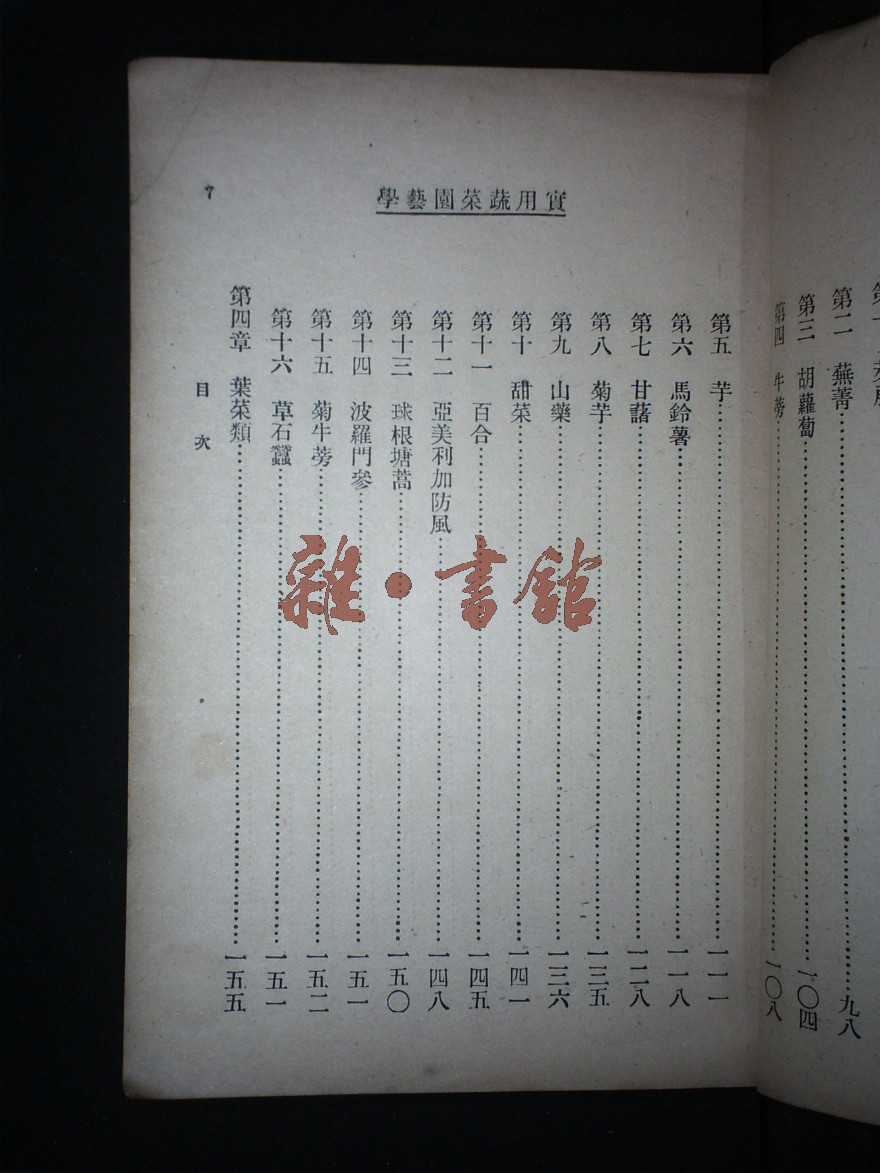 第二 蕪菁……九八
第三 胡蘿蔔……一〇四
第四 牛蒡……一〇八
實用蔬菜園藝學
7
第五 芋……一一一
第六 馬鈴薯……一一八
第七 甘藷……一二八
第八 菊芋……一三五
第九 山藥……一三六
第十 甜菜……一四一
第十一 百合……一四五
第十二 亞美利加防風……一四八
第十三 球根塘蒿……一五〇
第十四 波羅門參……一五一
第十五 菊牛蒡……一五二
第十六 草石蠶……一五一
第四章 葉菜類……一五五
目次
雜·書館